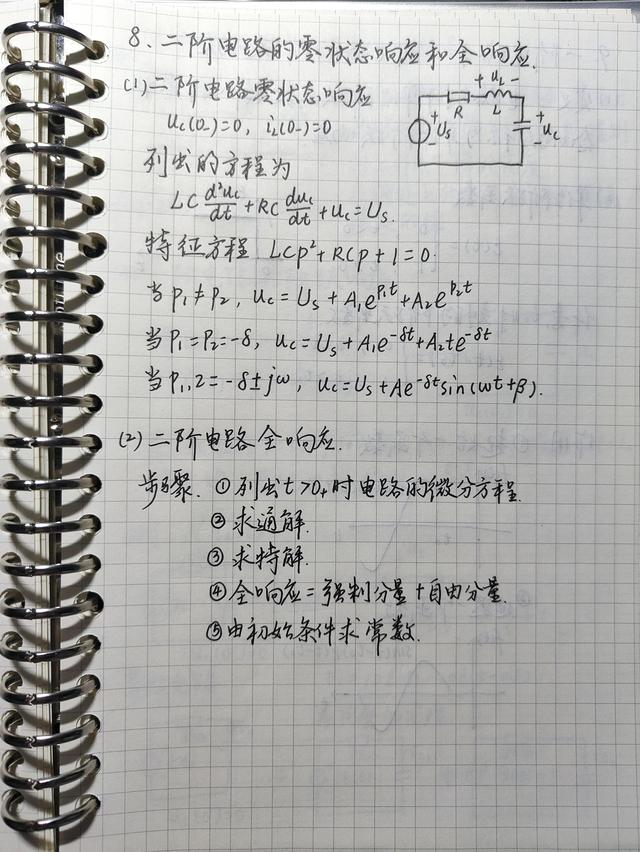 8、二阶电路的零状态响应和全响应.
(1)二阶电路零状态响应
+ uL -
R L
+ Us - + uc -
uc(0-)=0, iL(0-)=0
列出的方程为
LC d²uc/dt + RC duc/dt + uc = Us.
特征方程 LCp²+RCp+1=0.
当 p₁≠p₂, uc = Us + A₁e^{p₁t} + A₂e^{p₂t}
当 p₁=p₂=-δ, uc = Us + A₁e^{-δt} + A₂te^{-δt}
当 p₁,2 = -δ±jω, uc = Us + Ae^{-δt}sin(ωt+β).
(2)二阶电路全响应.
步骤. ①列出t>0₊时电路的微分方程.
②求通解.
③求特解.
④全响应=强制分量+自由分量.
⑤由初始条件求常数.